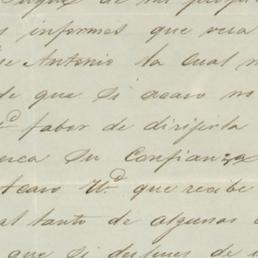 de mi
informes que vera
Antonio la cual
de que si acaso no
fabor de dirijirla
su Confianza
Acaso Ud que recibe
al tanto de algunas
que si despues de